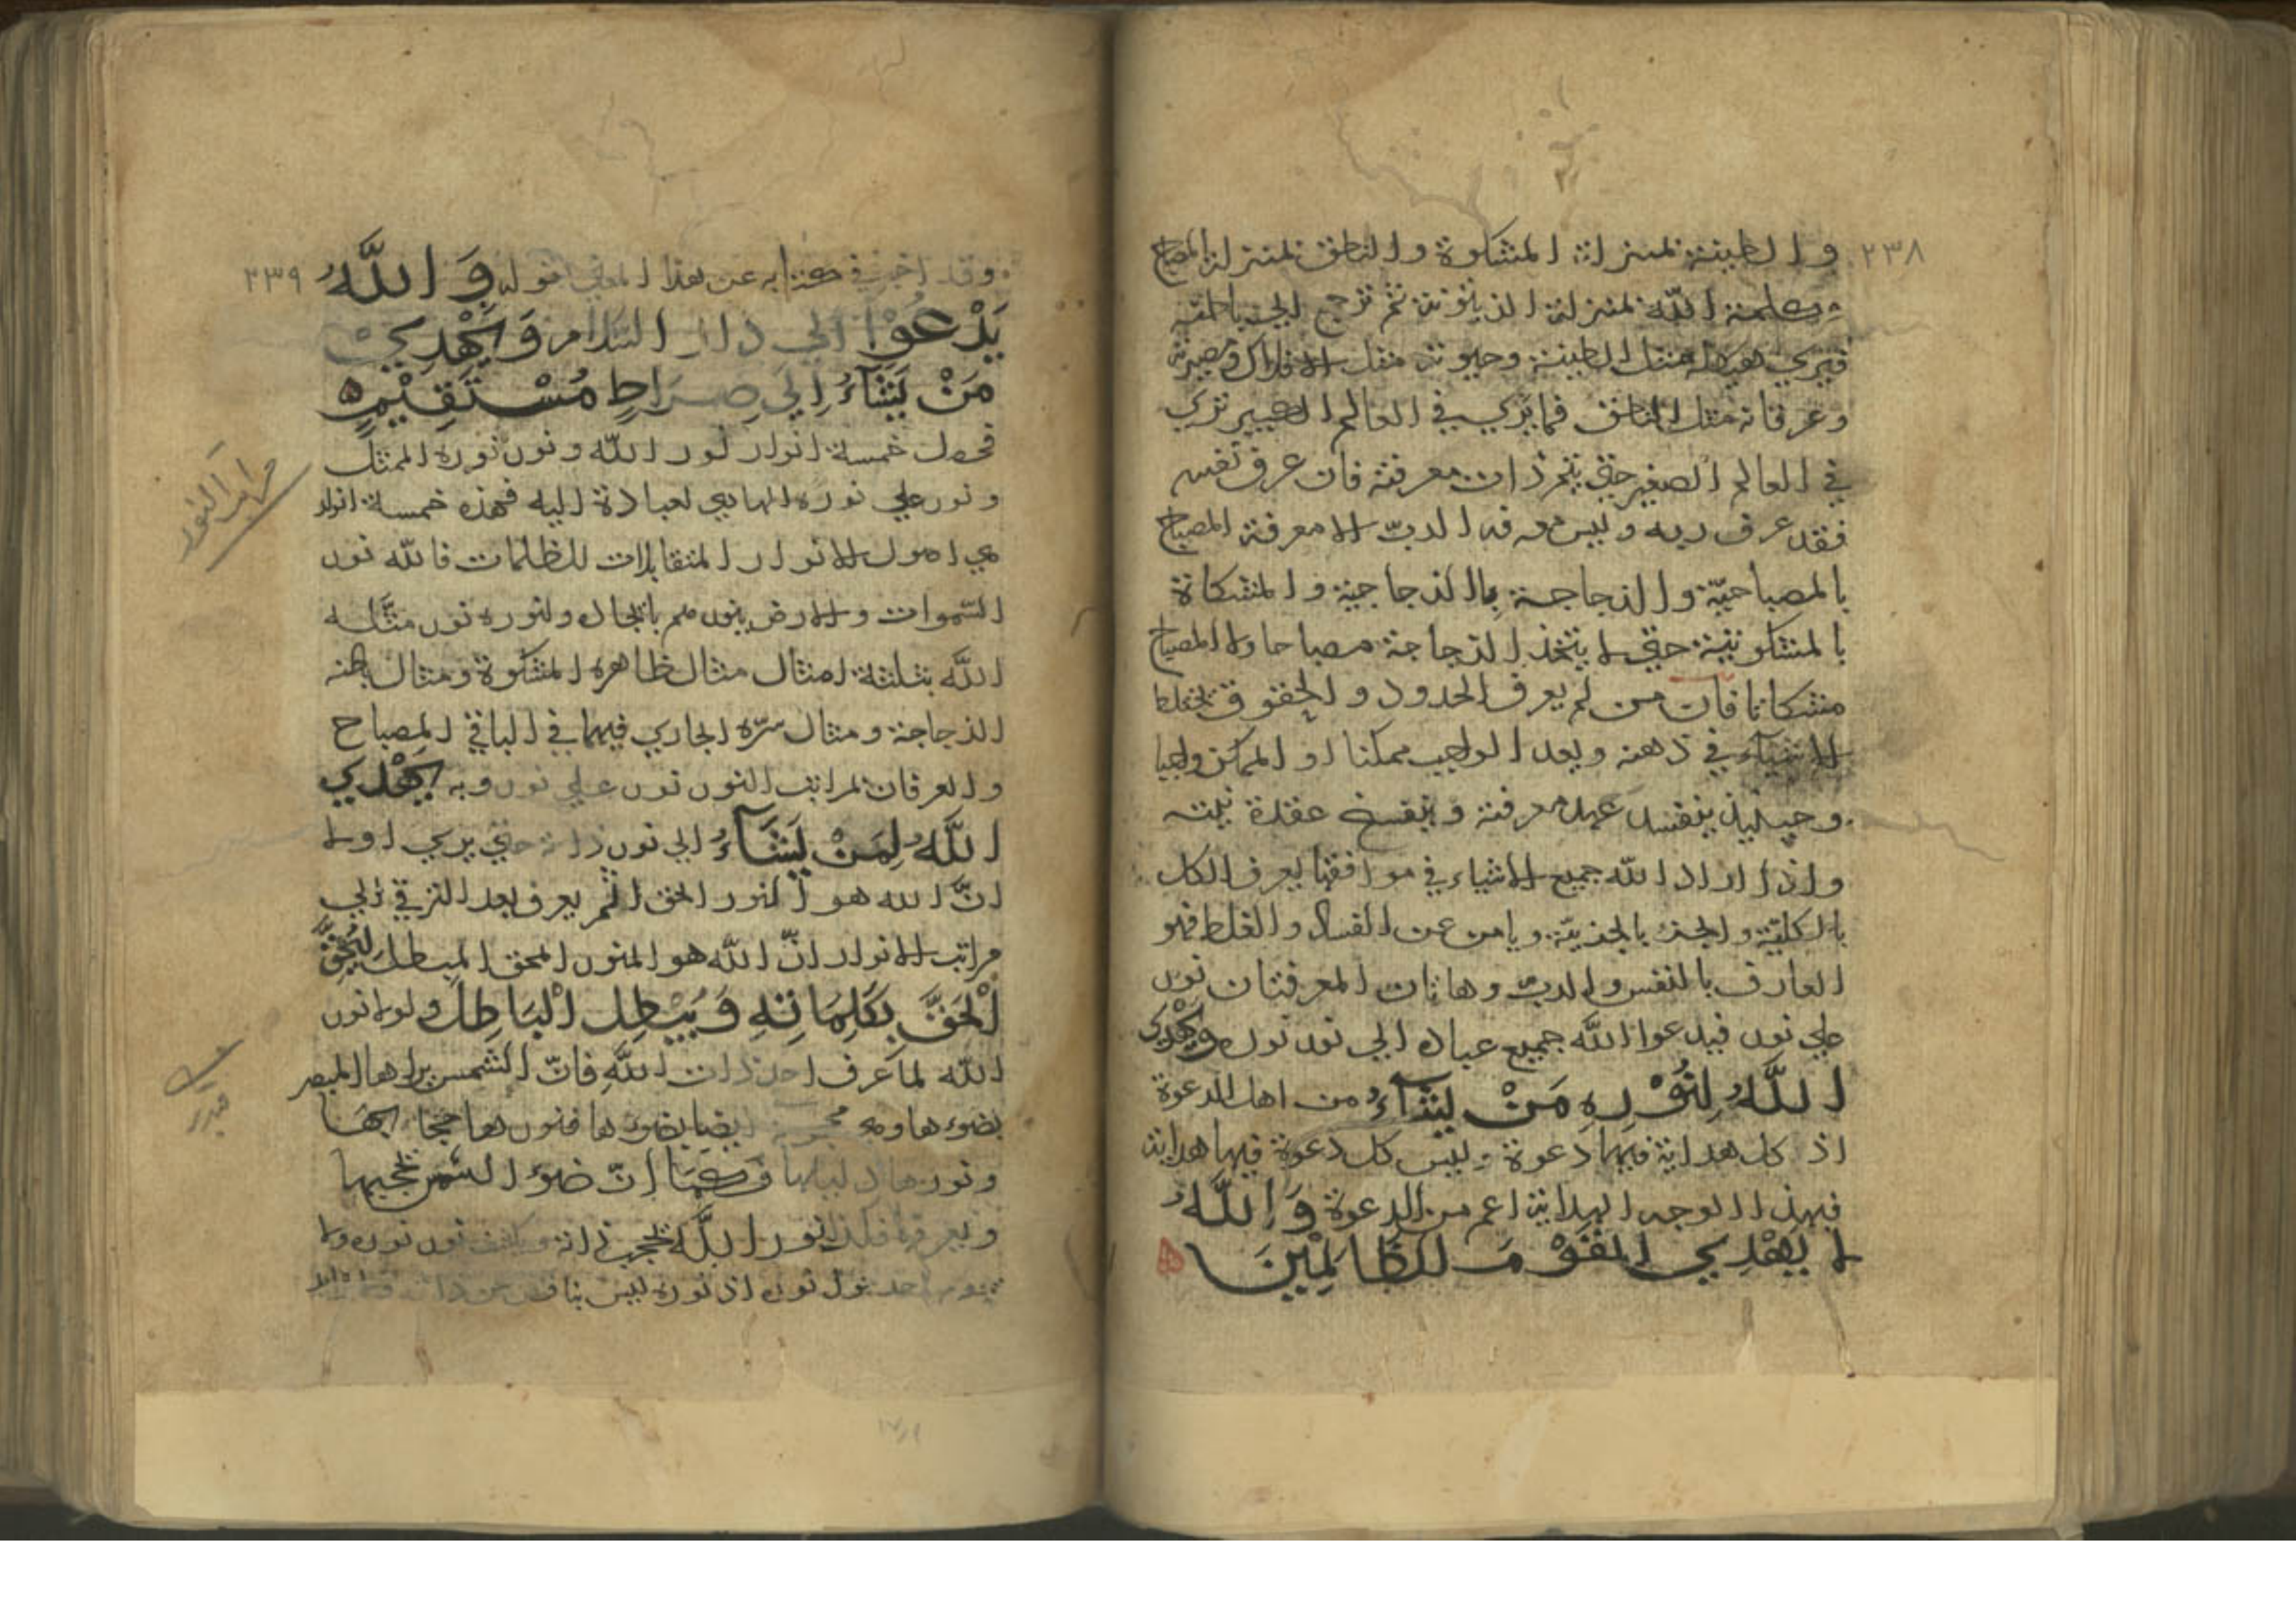 ٢٣٨
والطينة بمنزلة المشكوة والناطق بمنزلة المصباح
وكلمة الله بمنزلة الزيتونة ثم ترجع الي باطنه
فيري هيكله مثل الطينة وحيوته مثل الافلاك
وعرفانه مثل الناطق فما يري في العالم الكبير يري
في العالم الصغير حتي يتم ذات معرفته فان عرف نفسه
فقد عرف ربه وليس معرفة الرب الا معرفة المصباح
بالمصباحية والزجاجة بالزجاجية والمشكاة
بالمشكوتية حتي لا يتخذ الزجاجة مصباحا ولا المصباح
مشكاتا فان من لم يعرف الحدود والحقوق يختلط
الاشياء في ذهنه ويعد الواجب ممكنا او الممكن واجبا
وحينئذ ينفسد عهد معرفته وينفسخ عقدة نيته
واذا اراد الله جميع الاشياء في موافقها يعرف الكل
بالكلية والجزء بالجزئية ويامن عن الفساد والغلط فهو
العارف بالنفس والرب وهاتان المعرفتان نور
علي نور فيدعوا الله جميع عباده الي نور نوره ويهدي
الله لنوره من يشاء من اهل الدعوة
اذ كل هداية فيها دعوة وليس كل دعوة فيها هداية
فبهذا الوجه الهداية اعم من الدعوة والله
لا يهدي القوم الظالمين
٢٣٩
وقد اخبر في كتابه عن هذا المعني قوله والله
يدعوا الي دار السلام ويهدي
من يشاء الي صراط مستقيم
فحصل خمسة انوار نور الله ونور نوره الممثل
ونور علي نوره الهادي لعباده اليه فهذه خمسة انوار
هي اصول الانوار المتقابلات للظلمات فالله نور
السموات والارض ينورهم بالجمال ولنوره نور مثله
الله بثلثة امثال مثال ظاهره المشكوة ومثال باطنه
الزجاجة ومثال سره الجاري فيهما في الباقي المصباح
والعرفان بمراتب النور نور علي نور وبه يهدي
الله لمن يشاء الي نور ذاته حتي يري اولا
ان الله هو النور الحق ثم يعرف بعد الترقي الي
مراتب الانوار ان الله هو المنور المحق المبطل ليحق
الحق بكلماته ويبطل الباطل ولولا نور
الله لما عرف احد ذات الله فان الشمس يراها المبصر
بضوءها وهي محجوبة ايضا بضوءها فنورها حجابها
ونورها دليلها وكما ان ضوء الشمس يحجبها
ويعرفها فكذا نور الله يحجب ذاته ويكشف نور نوره ولا
احد نوره اذ نوره ليس
مراتب النور